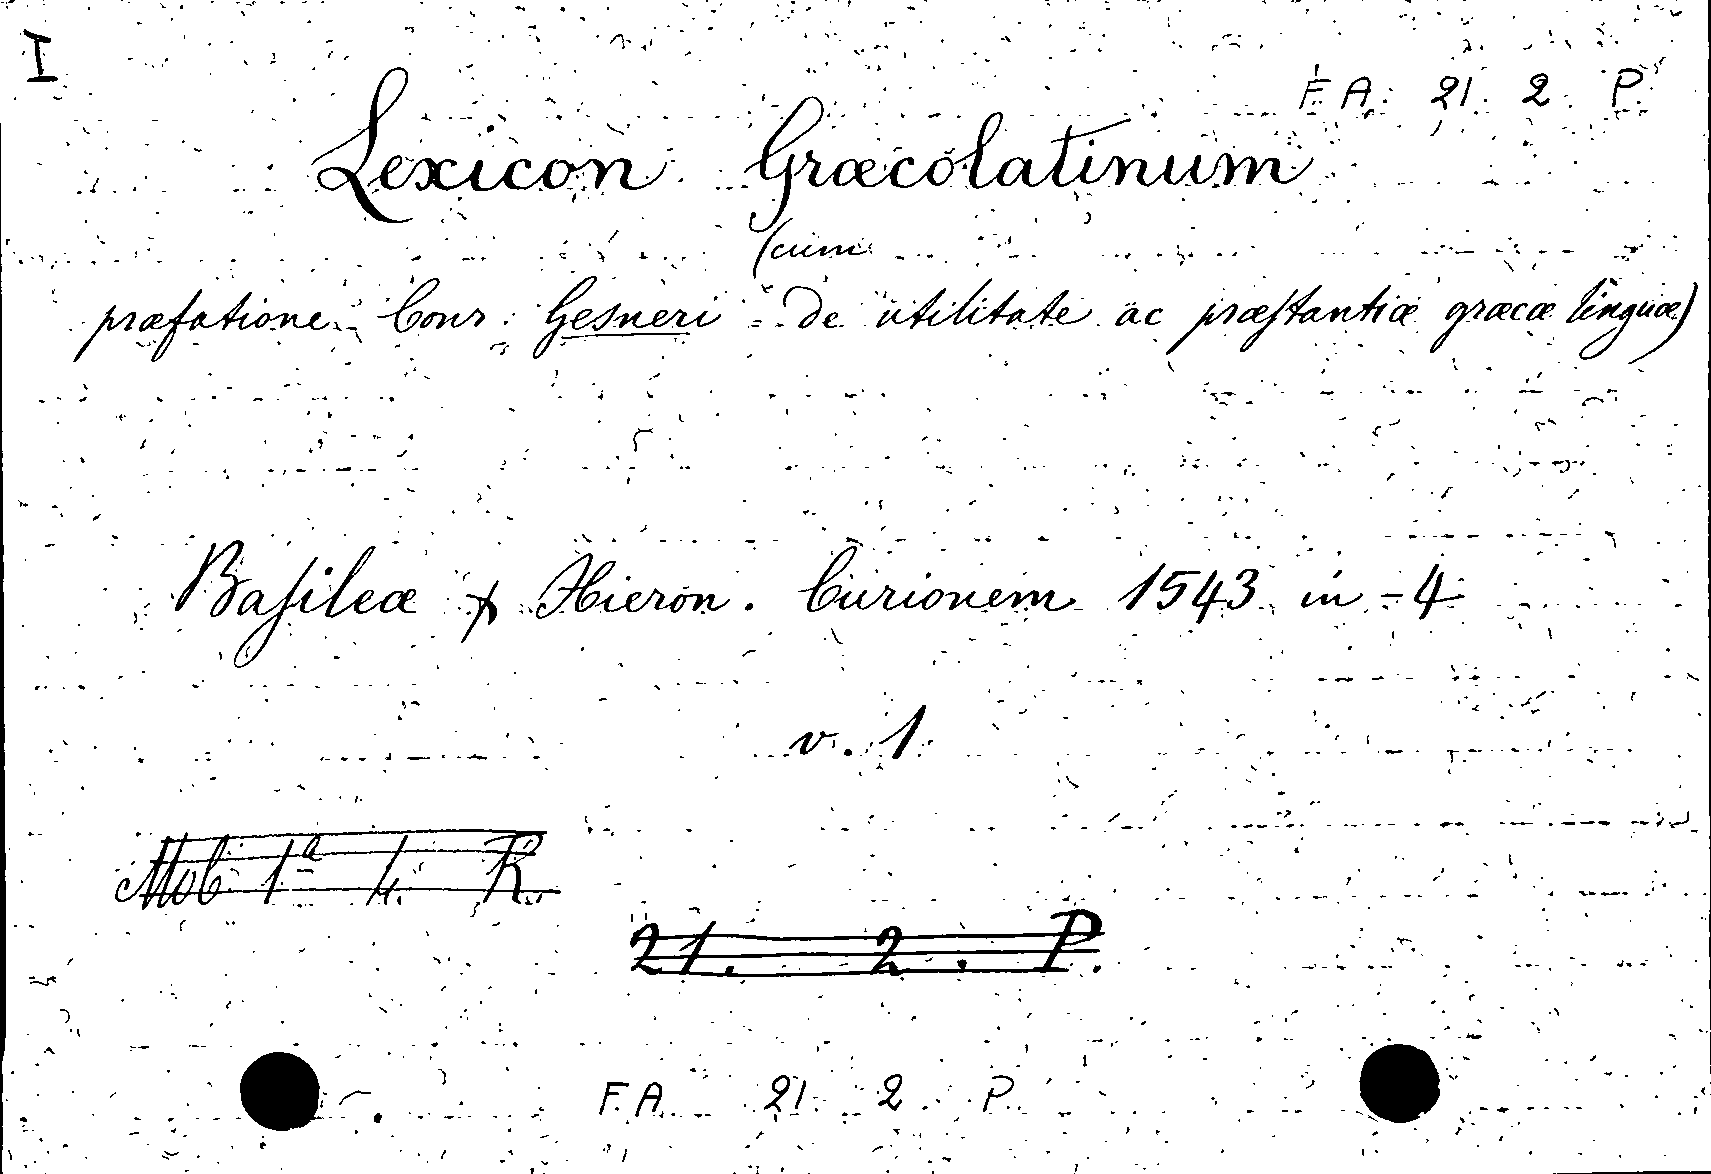 I
F.A. 21. 2. P.
Lexicon Græcolatinum
(cum
præfatione Conr. Gesneri de utilitate ac præstantiæ græcæ linguæ)
Basileæ Hieron. Curionem 1543 in-4
v. 1
Mob 1a 4. R.
21. 2. P.
F.A. 21. 2. P.